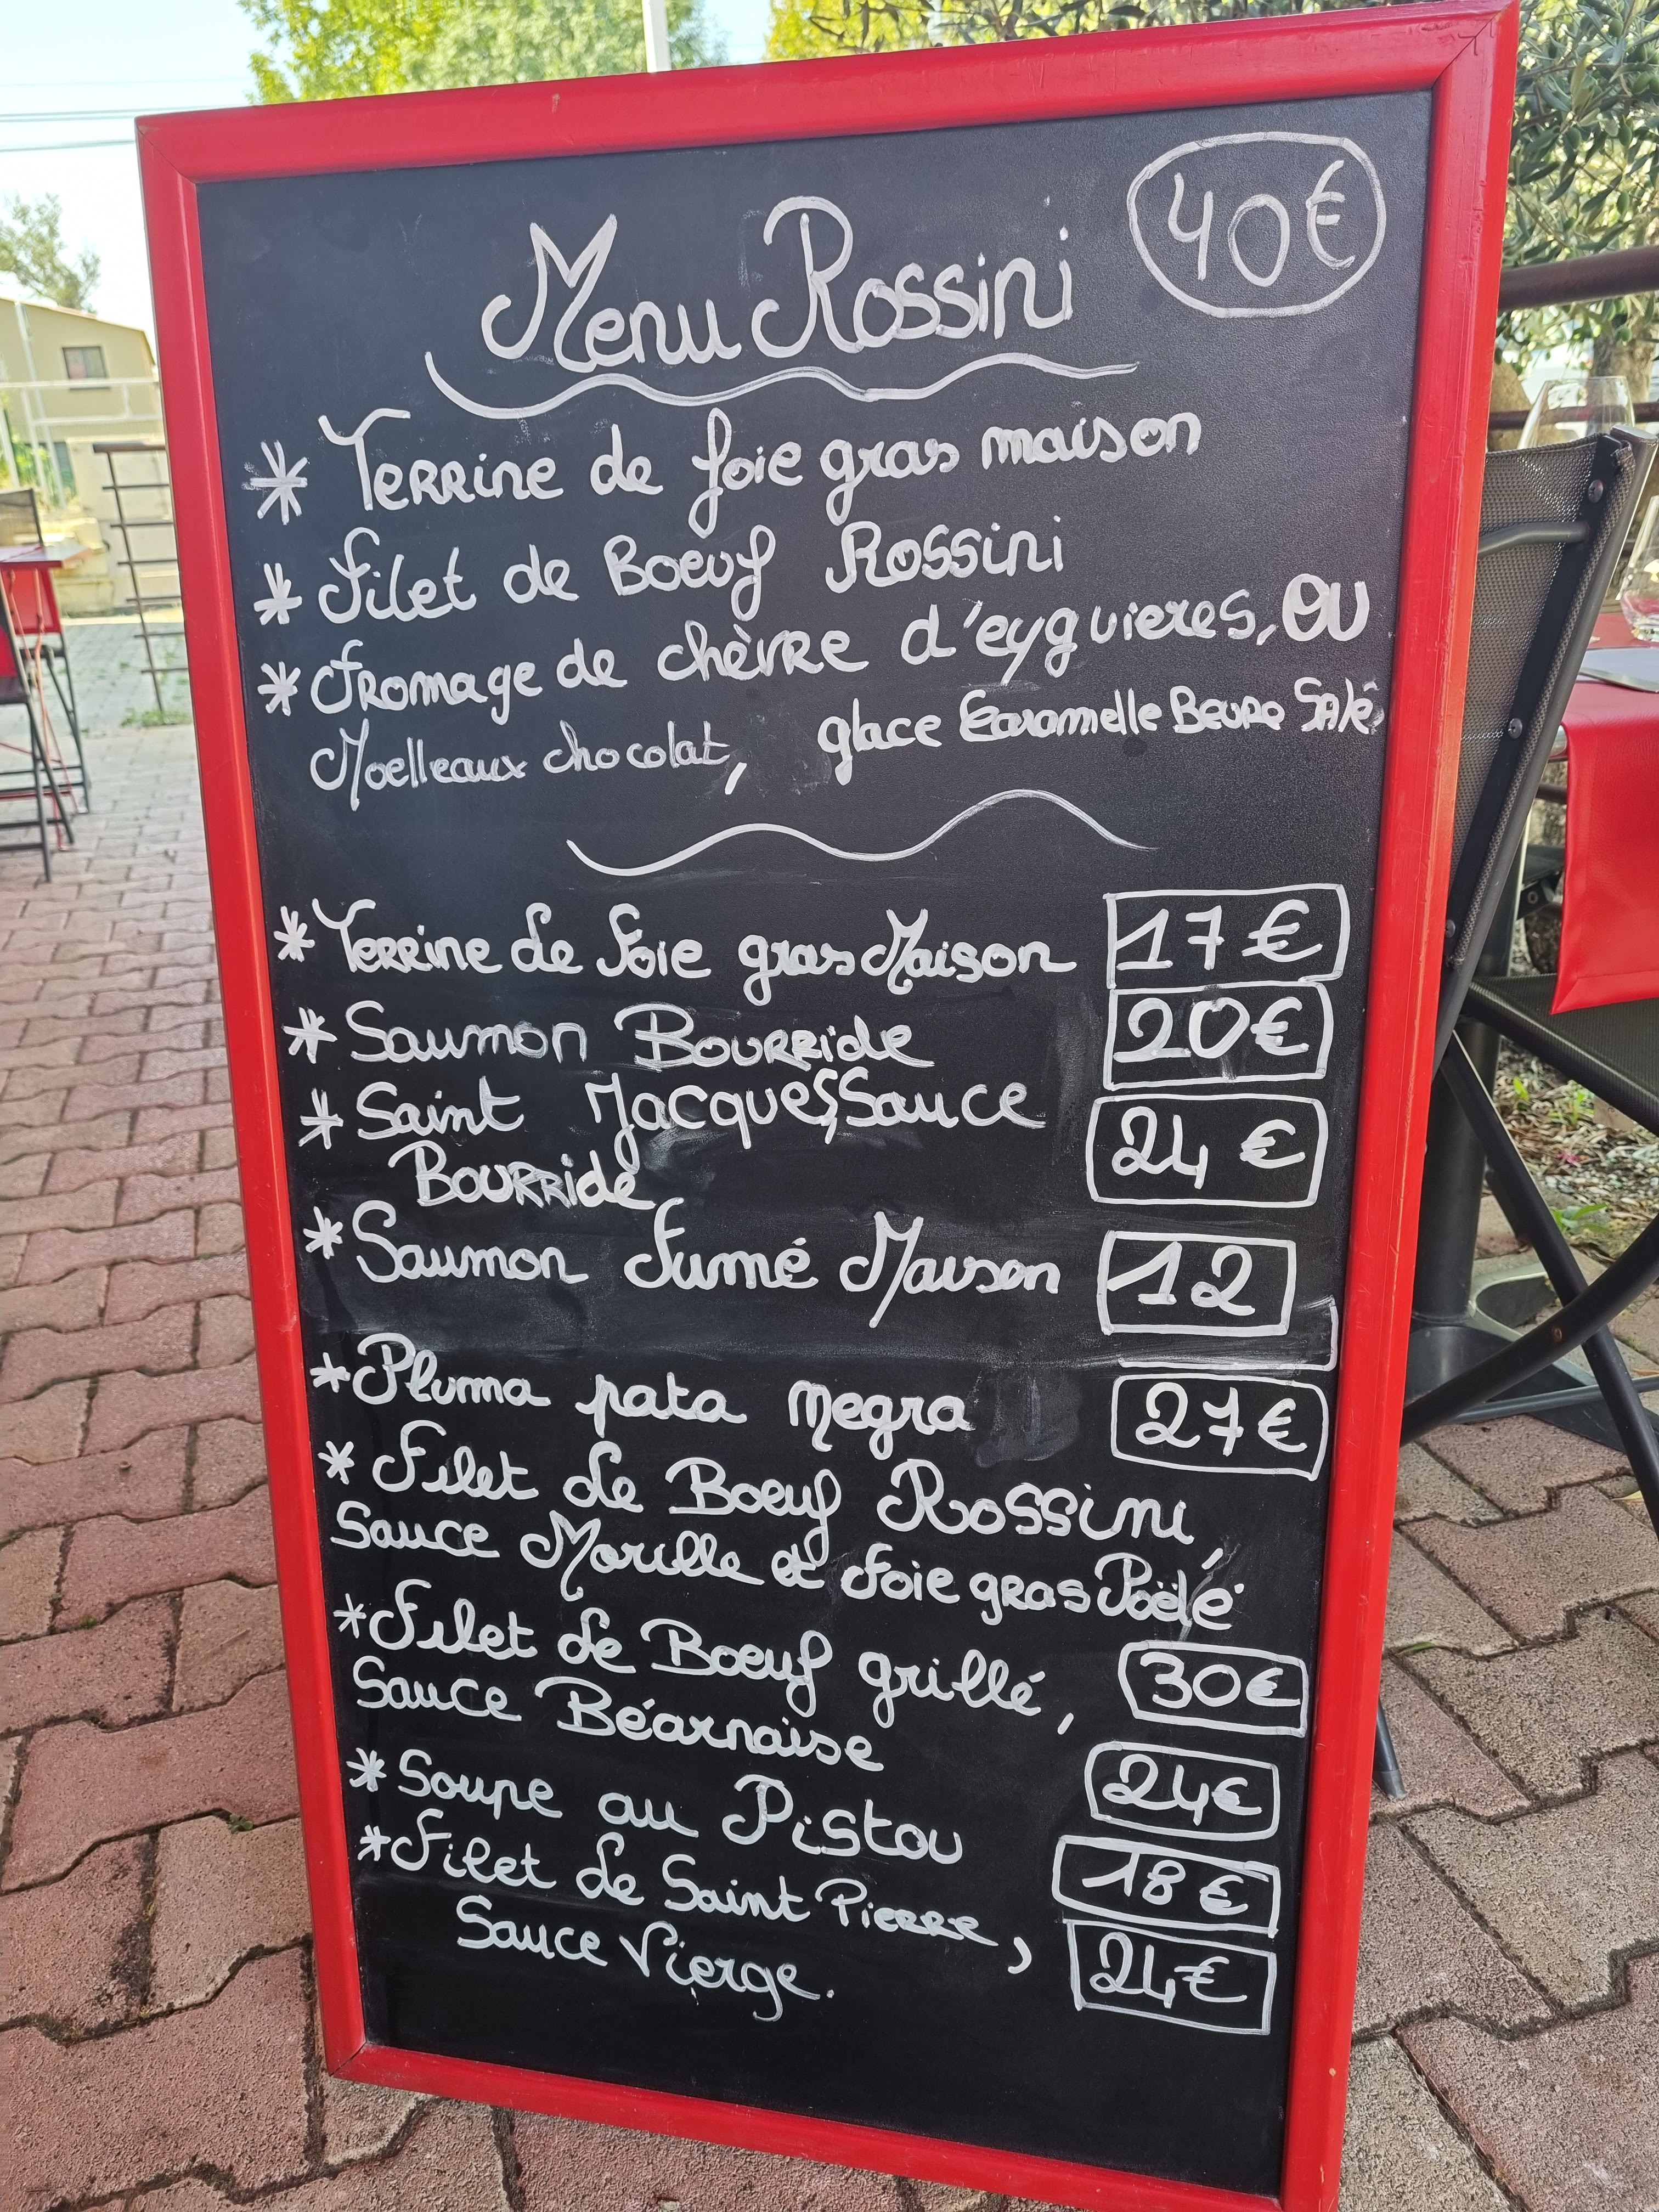 40€
Menu Rossini
* Terrine de foie gras maison
* Filet de Boeuf Rossini
* Fromage de chèvre d'eyguieres, OU
Moelleaux chocolat, glace Caramelle Beure Salé
* Terrine de Foie gras Maison 17€
* Saumon Bourride 20€
* Saint Jacques, Sauce 24€
Bourride
* Saumon Fumé Maison 12
* Pluma pata Negra 27€
* Filet de Boeuf Rossini,
Sauce Morille et foie gras Poëlé
* Filet de Boeuf grillé, 30€
Sauce Béarnaise
* Soupe au Pistou 24€
* Filet de Saint Pierre, 18€
Sauce Vierge. 24€